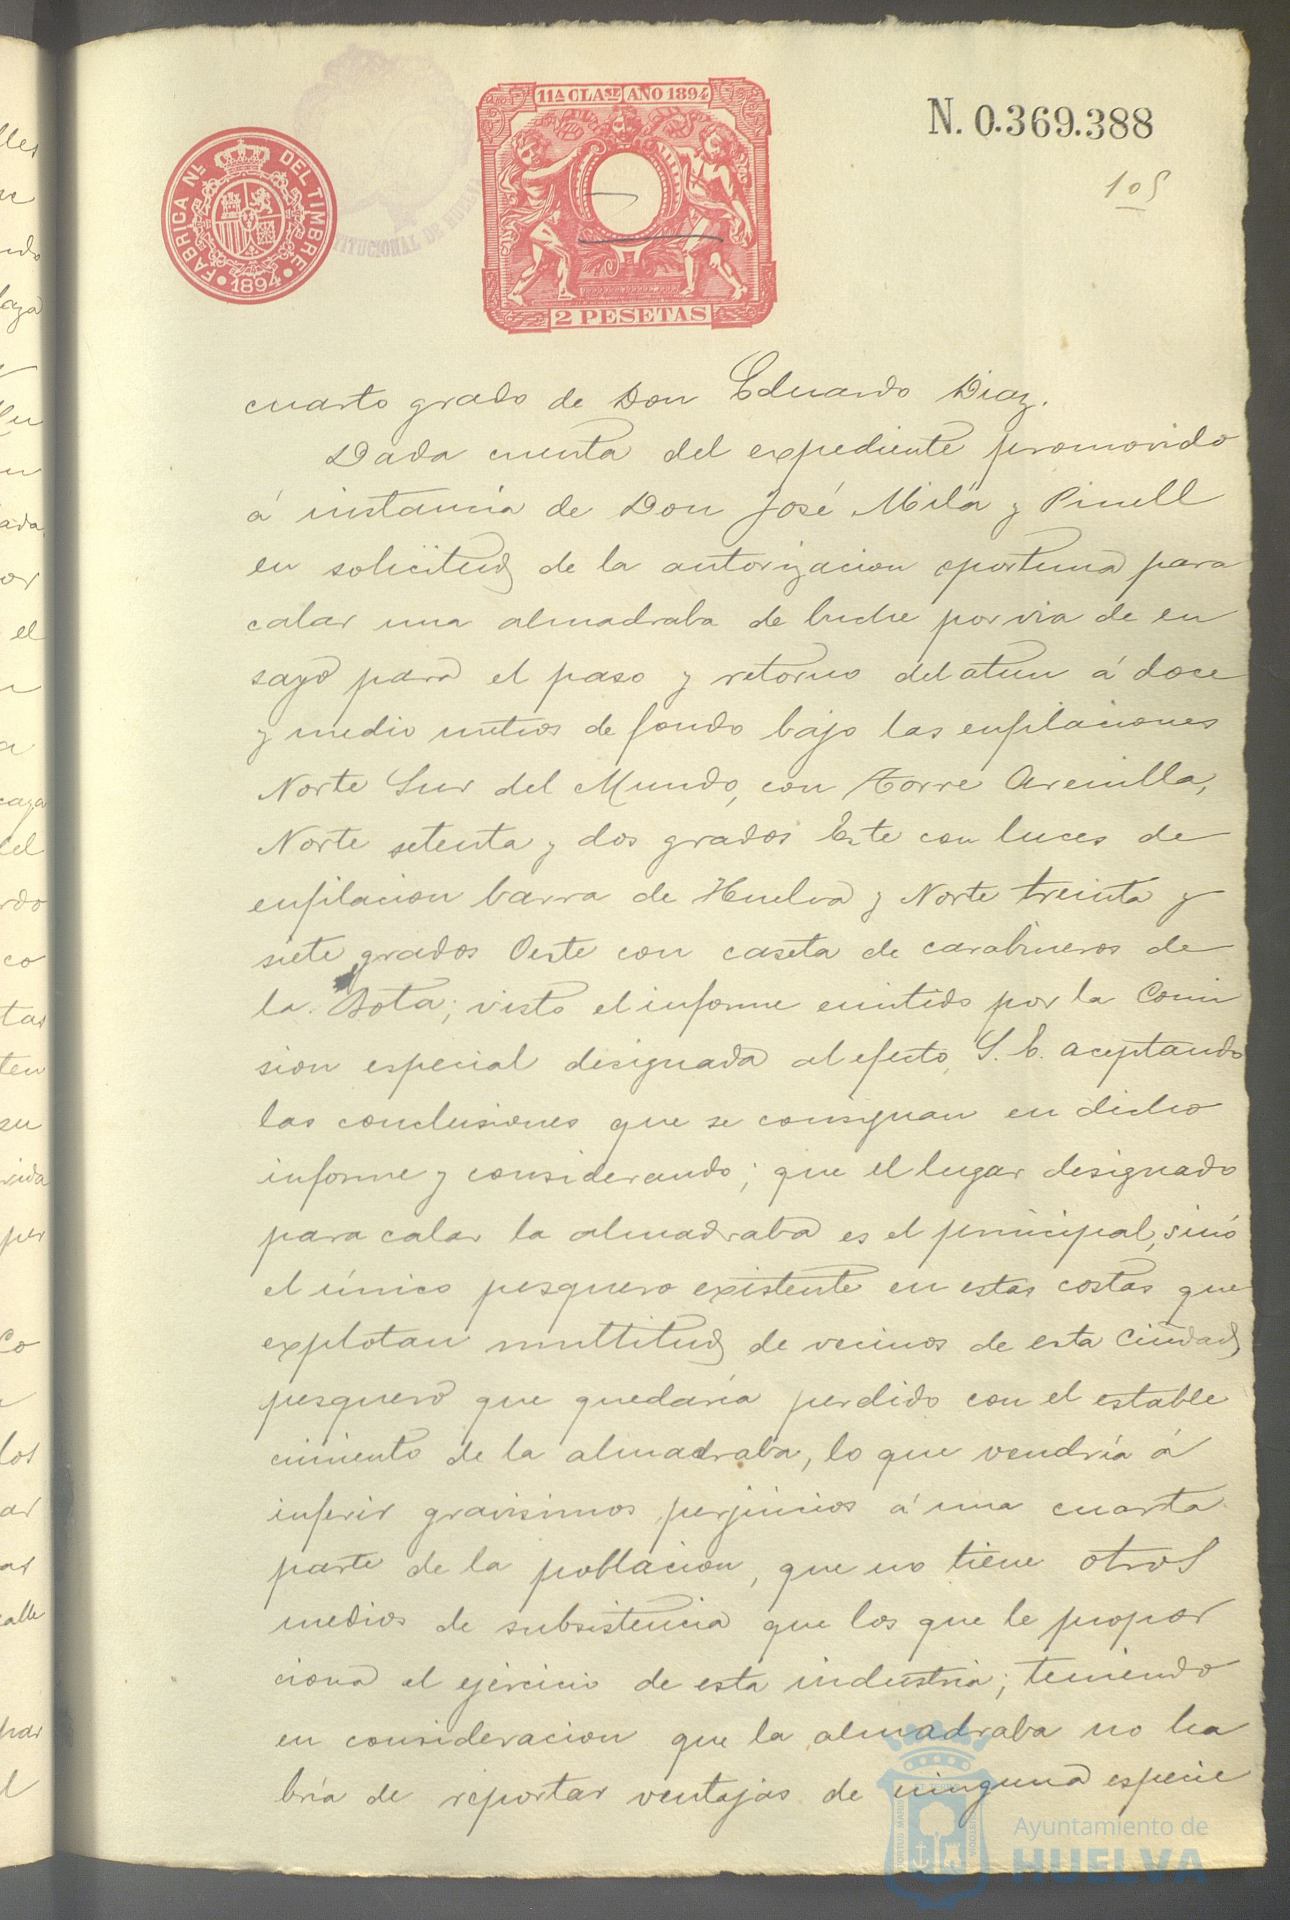 11ª CLASE AÑO 1894
N. 0.369.388
105
FÁBRICA NL. DEL TIMBRE
1894
2 PESETAS
cuarto grado de Don Eduardo Diaz.
Dada cuenta del expediente promovido
á instancia de Don José Milá y Pinell
en solicitud de la autorizacion oportuna para
calar una almadraba de buche por via de en
sayo para el paso y retorno del atun á doce
y medio metros de fondo bajo las enfilaciones
Norte Sur del Mundo, con Torre Arenilla,
Norte setenta y dos grados Este con luces de
enfilacion barra de Huelva y Norte treinta y
siete grados Oeste con caseta de carabineros de
la Bota; visto el informe emitido por la Comi
sion especial designada al efecto, S. E. aceptando
las conclusiones que se consignan en dicho
informe y considerando; que el lugar designado
para calar la almadraba es el principal, sinó
el único pesquero existente en estas costas que
explotan multitud de vecinos de esta Ciudad
pesquero que quedaría perdido con el estable
cimiento de la almadraba, lo que vendría á
inferir gravisimos perjuicios á una cuarta
parte de la poblacion, que no tiene otros
medios de subsistencia que los que le propor
ciona el ejercicio de esta industria; teniendo
en consideracion que la almadraba no ha
bría de reportar ventajas de ninguna especie
Ayuntamiento de
HUELVA